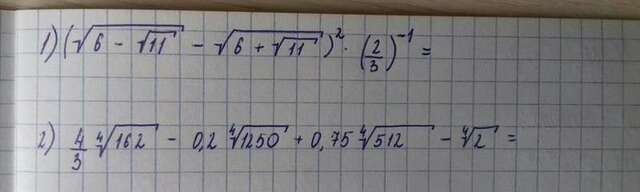 1) (√(6 - √11) - √(6 + √11))² · (2/3)⁻¹ =
2) 4/3 ⁴√162 - 0,2 ⁴√1250 + 0,75 ⁴√512 - ⁴√2 =